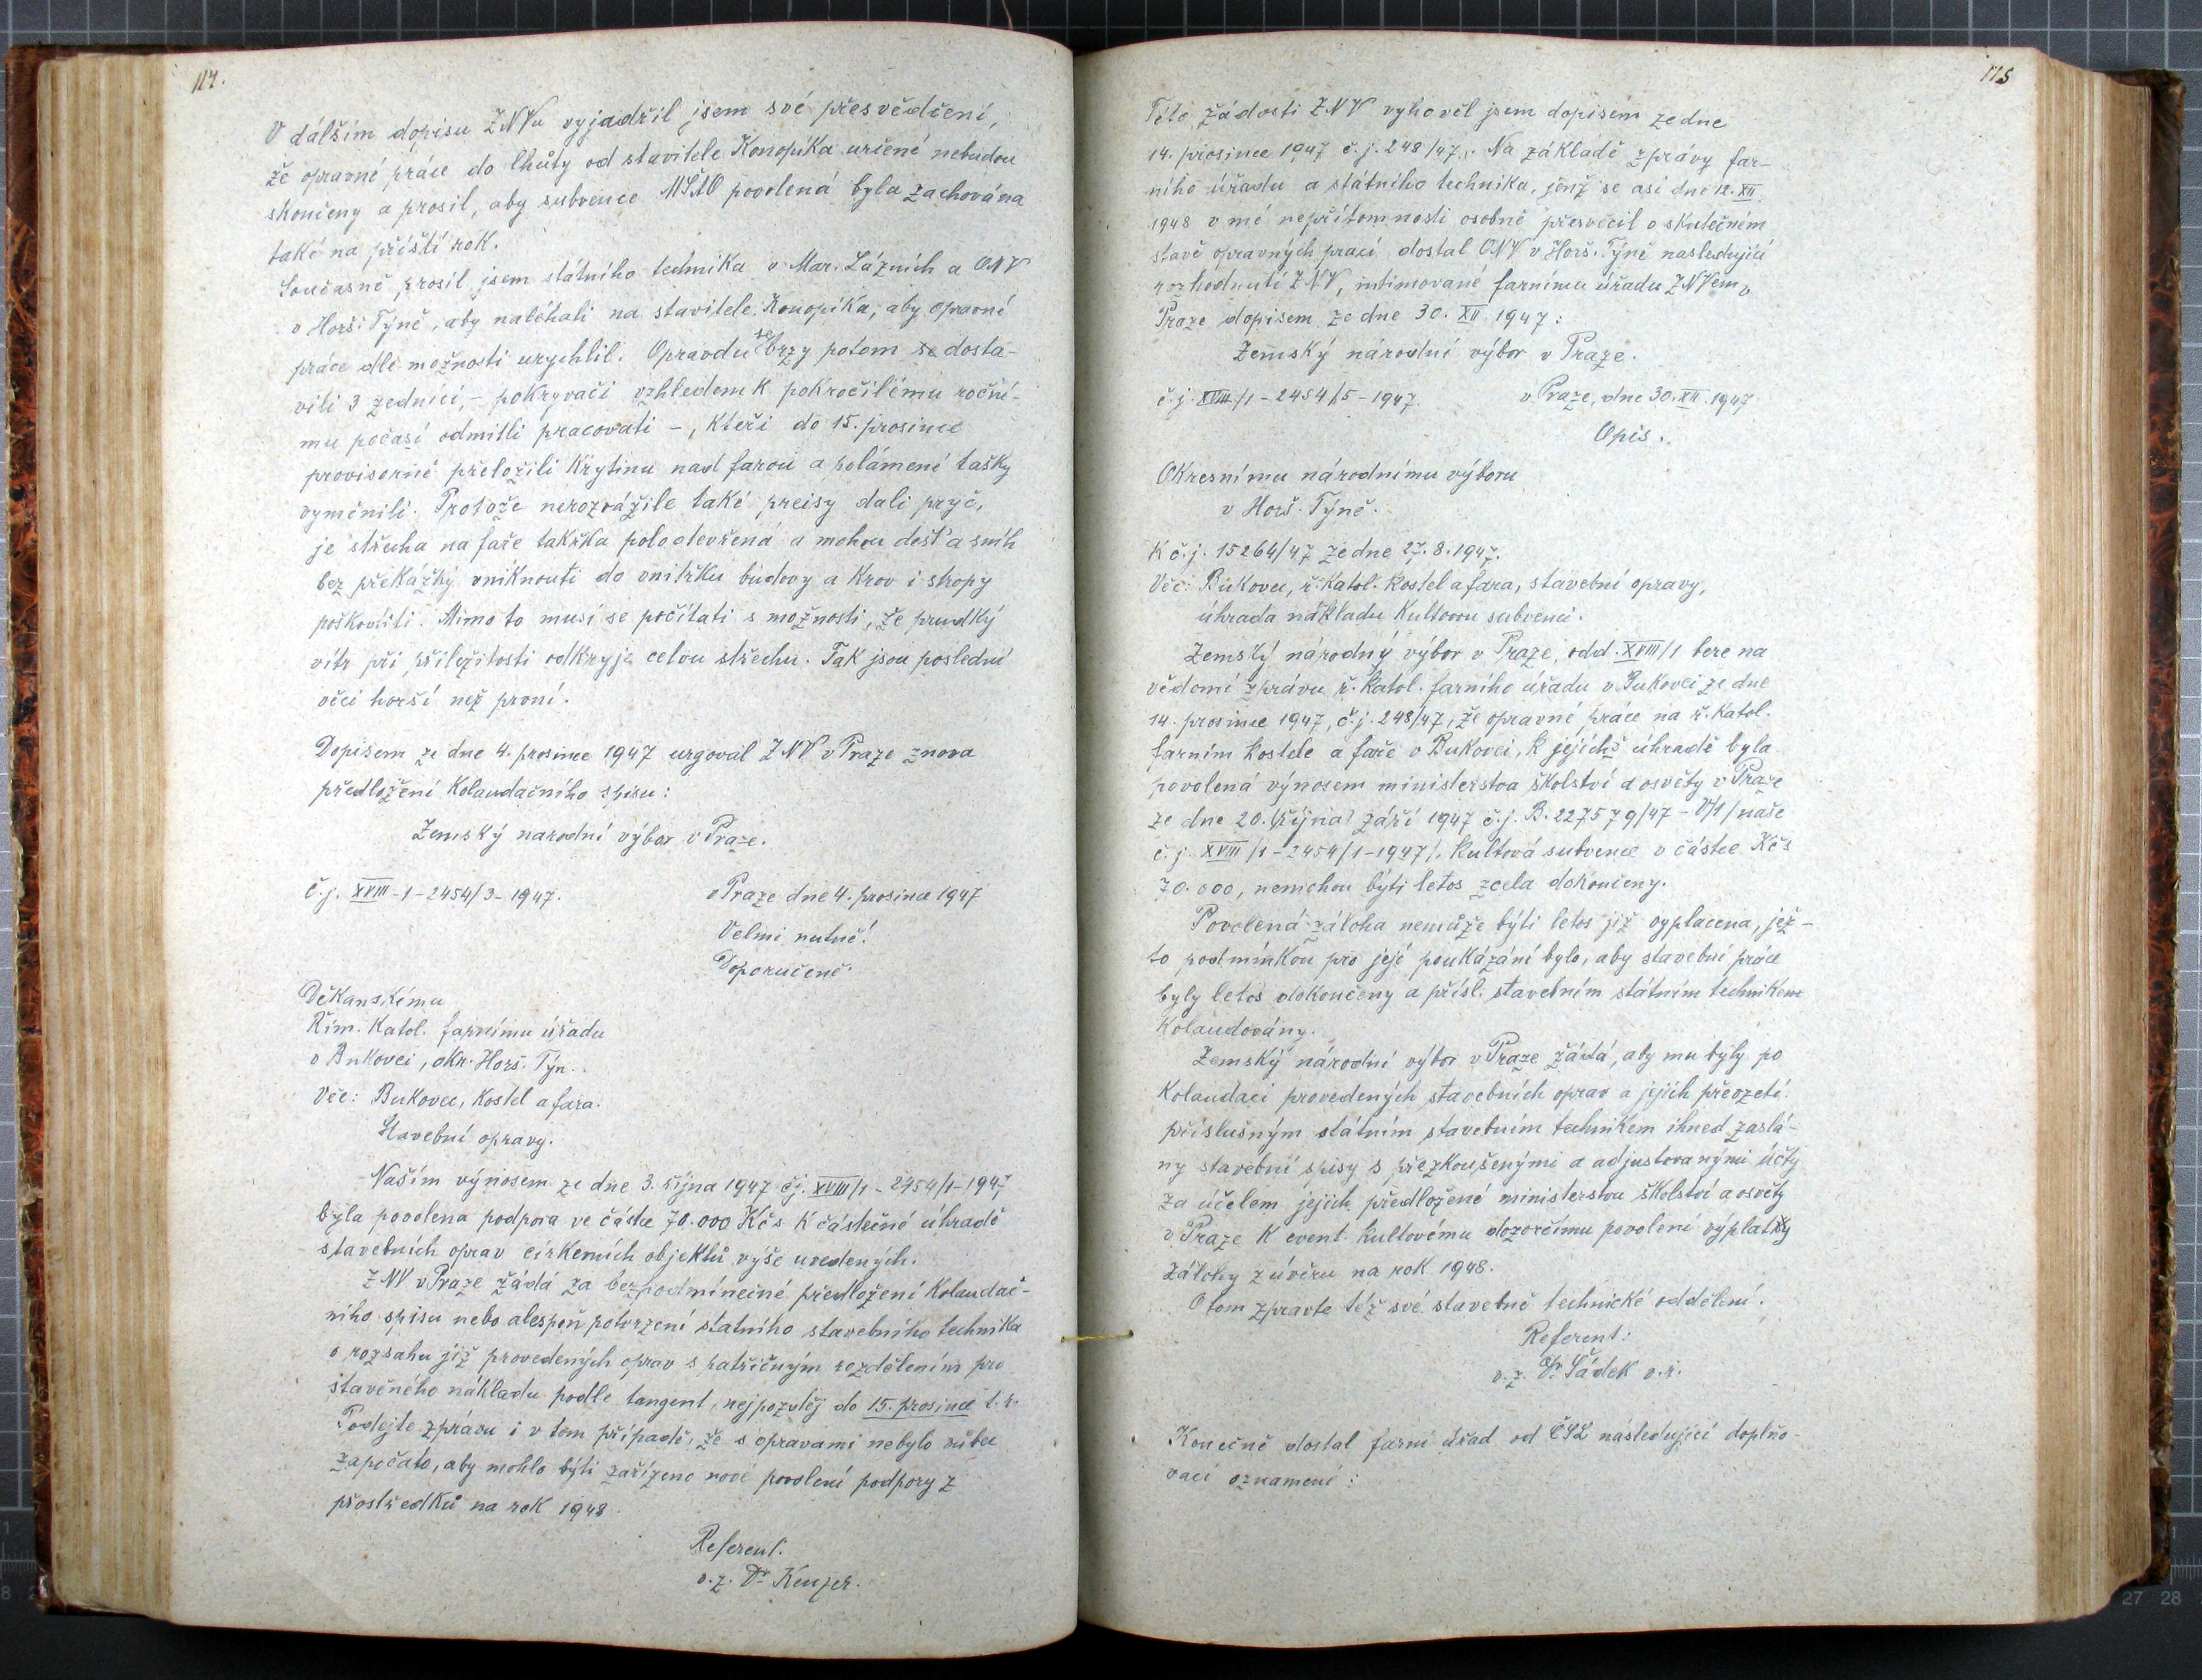 114.
V dálším dopisu ZNVu vyjadřil jsem své přesvědčení,
že opravné práce do lhůty od stavitele Konopíka určené nebudou
skončeny a prosil, aby subvence MŠAO povolená byla zachována
také na příští rok.
Současně prosil jsem státního technika v Mar. Lázních a ONV
v Horš. Týně, aby naléhali na stavitele Konopíka, aby opravné
práce dle možnosti urychlil. Opravdu se brzy potom se dosta-
vili 3 zedníci, – pokryvači vzhledem k pokročilému roční-
mu počasí odmítli pracovati –, kteří do 15. prosince
provisorně přeložili krytinu nad farou a polámené tašky
vyměnili. Protože nerozvážile také preisy dali pryč,
je střecha na faře takřka polootevřená a mohou dešť a sníh
bez překážky vniknouti do vnitřku budovy a krov i stropy
poškoditi. Mimo to musí se počítati s možnosti, že prudký
vítr při příležitosti odkryje celou střechu. Tak jsou poslední
věci horší než první.
Dopisem ze dne 4. prosince 1947 urgoval ZNV v Praze znova
předložení kolaudačního spisu:
Zemský narodní výbor v Praze.
Č.j. XVIII-1-2454/3-1947. v Praze dne 4. prosince 1947
Velmi nutné!
Doporučeně.
Děkanskému
Řím. katol. farnímu úřadu
v Bukovci, okr. Horš. Týn.
Věc: Bukovec, kostel a fara.
Stavební opravy.
Naším výnosem ze dne 3. října 1947 čj. XVIII/1-2454/1-1947
byla povolena podpora ve částce 70.000 Kčs k částečné úhradě
stavebních oprav církevních objektů výše uvedených.
ZNV v Praze žádá za bezpodmínečné předložení kolaudač-
ního spisu nebo alespoň potvrzení statního stavebního technika
o rozsahu již provedených oprav s patřičným rozdělením pro
stavěného nákladu podle tangent, nejpozděj do 15. prosince t.r.
Podejte zprávu i v tom případě, že s opravami nebylo vůbec
započato, aby mohlo býti zařízeno nové povolení podpory z
prostředků na rok 1948.
Referent.
v.z. Dr
115
Této žádosti ZNV vyhověl jsem dopisem ze dne
14. prosince 1947 č.j. 248/47. Na základě zprávy far-
ního úřadu a státního technika, jenž se asi dne 12. XII.
1948 v mé nepřítomnosti osobně přesvěčil o skutečném
stavě opravných prací dostal ONV v Horš. Týně nasledující
rozhodnutí ZNV, intimované farnímu úřadu ZNVem v
Praze dopisem ze dne 30. XII. 1947:
Zemský národní výbor v Praze.
č.j. XVIII/1-2454/5-1947. v Praze, dne 30. XII. 1947
Opis.
Okresnímu národnímu výboru
v Horš. Týně.
K č.j. 15264/47 ze dne 27. 8. 1947.
Věc: Bukovec, ř. katol. kostel a fara, stavební opravy,
úhrada nákladu kultovou subvencí.
Zemský národný výbor v Praze, odd. XVIII/1 bere na
vědomí zprávu ř. katol. farního úřadu v Bukovci ze dne
14. prosince 1947, č.j. 248/47, že opravné práce na ř. katol.
farním kostele a faře v Bukovci, k jejichž úhradě byla
povolená výnosem ministerstva školství a osvěty v Praze
ze dne 20. (října) září 1947 č.j. B. 227579/47 – V/1 /naše
č.j. XVIII/1-2454/1-1947/. kultová subvence v částce Kčs
70.000, nemohou býti letos zcela dokončeny.
Povolená záloha nemůže býti letos již vyplacena, jež-
to podmínkou pro její poukázání bylo, aby stavební práce
byly letos dokončeny a přísl. stavebním státním technikem
kolaudovány.
Zemský národní výbor v Praze žádá, aby mu byly po
kolaudaci provedených stavebních oprav a jejich převzetí
příslušným státním stavebním technikem ihned zaslá-
ny stavební spisy s přezkoušenými a adjustovanými účty
za účelem jejich předložené ministerstvu školství a osvěty
v Praze k event. kultovému dozorčímu povolení výplatky
zálohy z úvěru na rok 1948.
O tom zpravte též své stavebně technické oddělení.
Referent:
v.z. Dr Sádek v.r.
Konečně dostal farní úřad od ČSL následující doplňo-
vací oznamení: